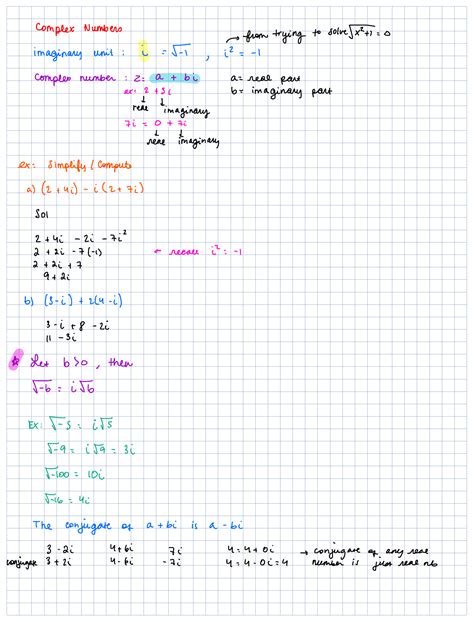 Complex Numbers
→ from trying to solve √x²+1 = 0
imaginary unit : i = √-1 , i² = -1
Complex number : z = a + bi a = real part
ex: 2 + 3i b = imaginary part
↓ ↓
real imaginary
7i = 0 + 7i
↓ ↓
real imaginary
ex: Simplify / Compute
a) (2 + 4i) - i(2 + 7i)
Sol
2 + 4i - 2i - 7i²
2 + 2i - 7(-1) ← recall i² = -1
2 + 2i + 7
9 + 2i
b) (3-i) + 2(4-i)
3 - i + 8 - 2i
11 - 3i
☆ Let b > 0 , then
√-b = i√b
Ex: √-5 = i√5
√-9 = i√9 = 3i
√-100 = 10i
√-16 = 4i
The conjugate of a + bi is a - bi
3 - 2i 4 + 6i 7i 4 = 4 + 0i → conjugate of any real
conjugate 3 + 2i 4 - 6i -7i 4 = 4 - 0i = 4 number is just real nb